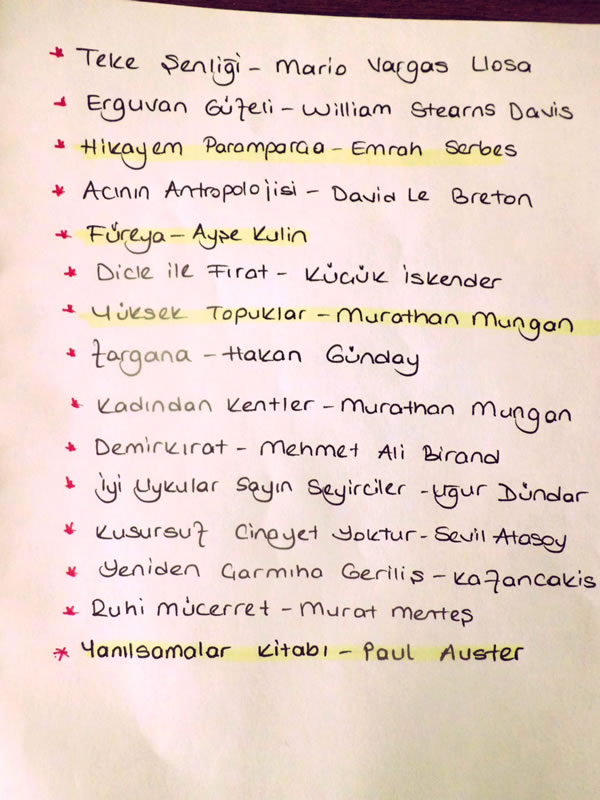 * Teke Şenliği - Mario Vargas Llosa
* Erguvan Güzeli - William Stearns Davis
* Hikayem Paramparça - Emrah Serbes
* Acının Antropolojisi - David Le Breton
* Füreya - Ayşe Kulin
* Dicle ile Fırat - Küçük İskender
* Yüksek Topuklar - Murathan Mungan
* Zargana - Hakan Günday
* Kadından Kentler - Murathan Mungan
* Demirkırat - Mehmet Ali Birand
* İyi Uykular Sayın Seyirciler - Uğur Dündar
* Kusursuz Cinayet Yoktur - Sevil Atasoy
* Yeniden Çarmıha Geriliş - Kazancakis
* Ruhi Mücerret - Murat Menteş
* Yanılsamalar Kitabı - Paul Auster